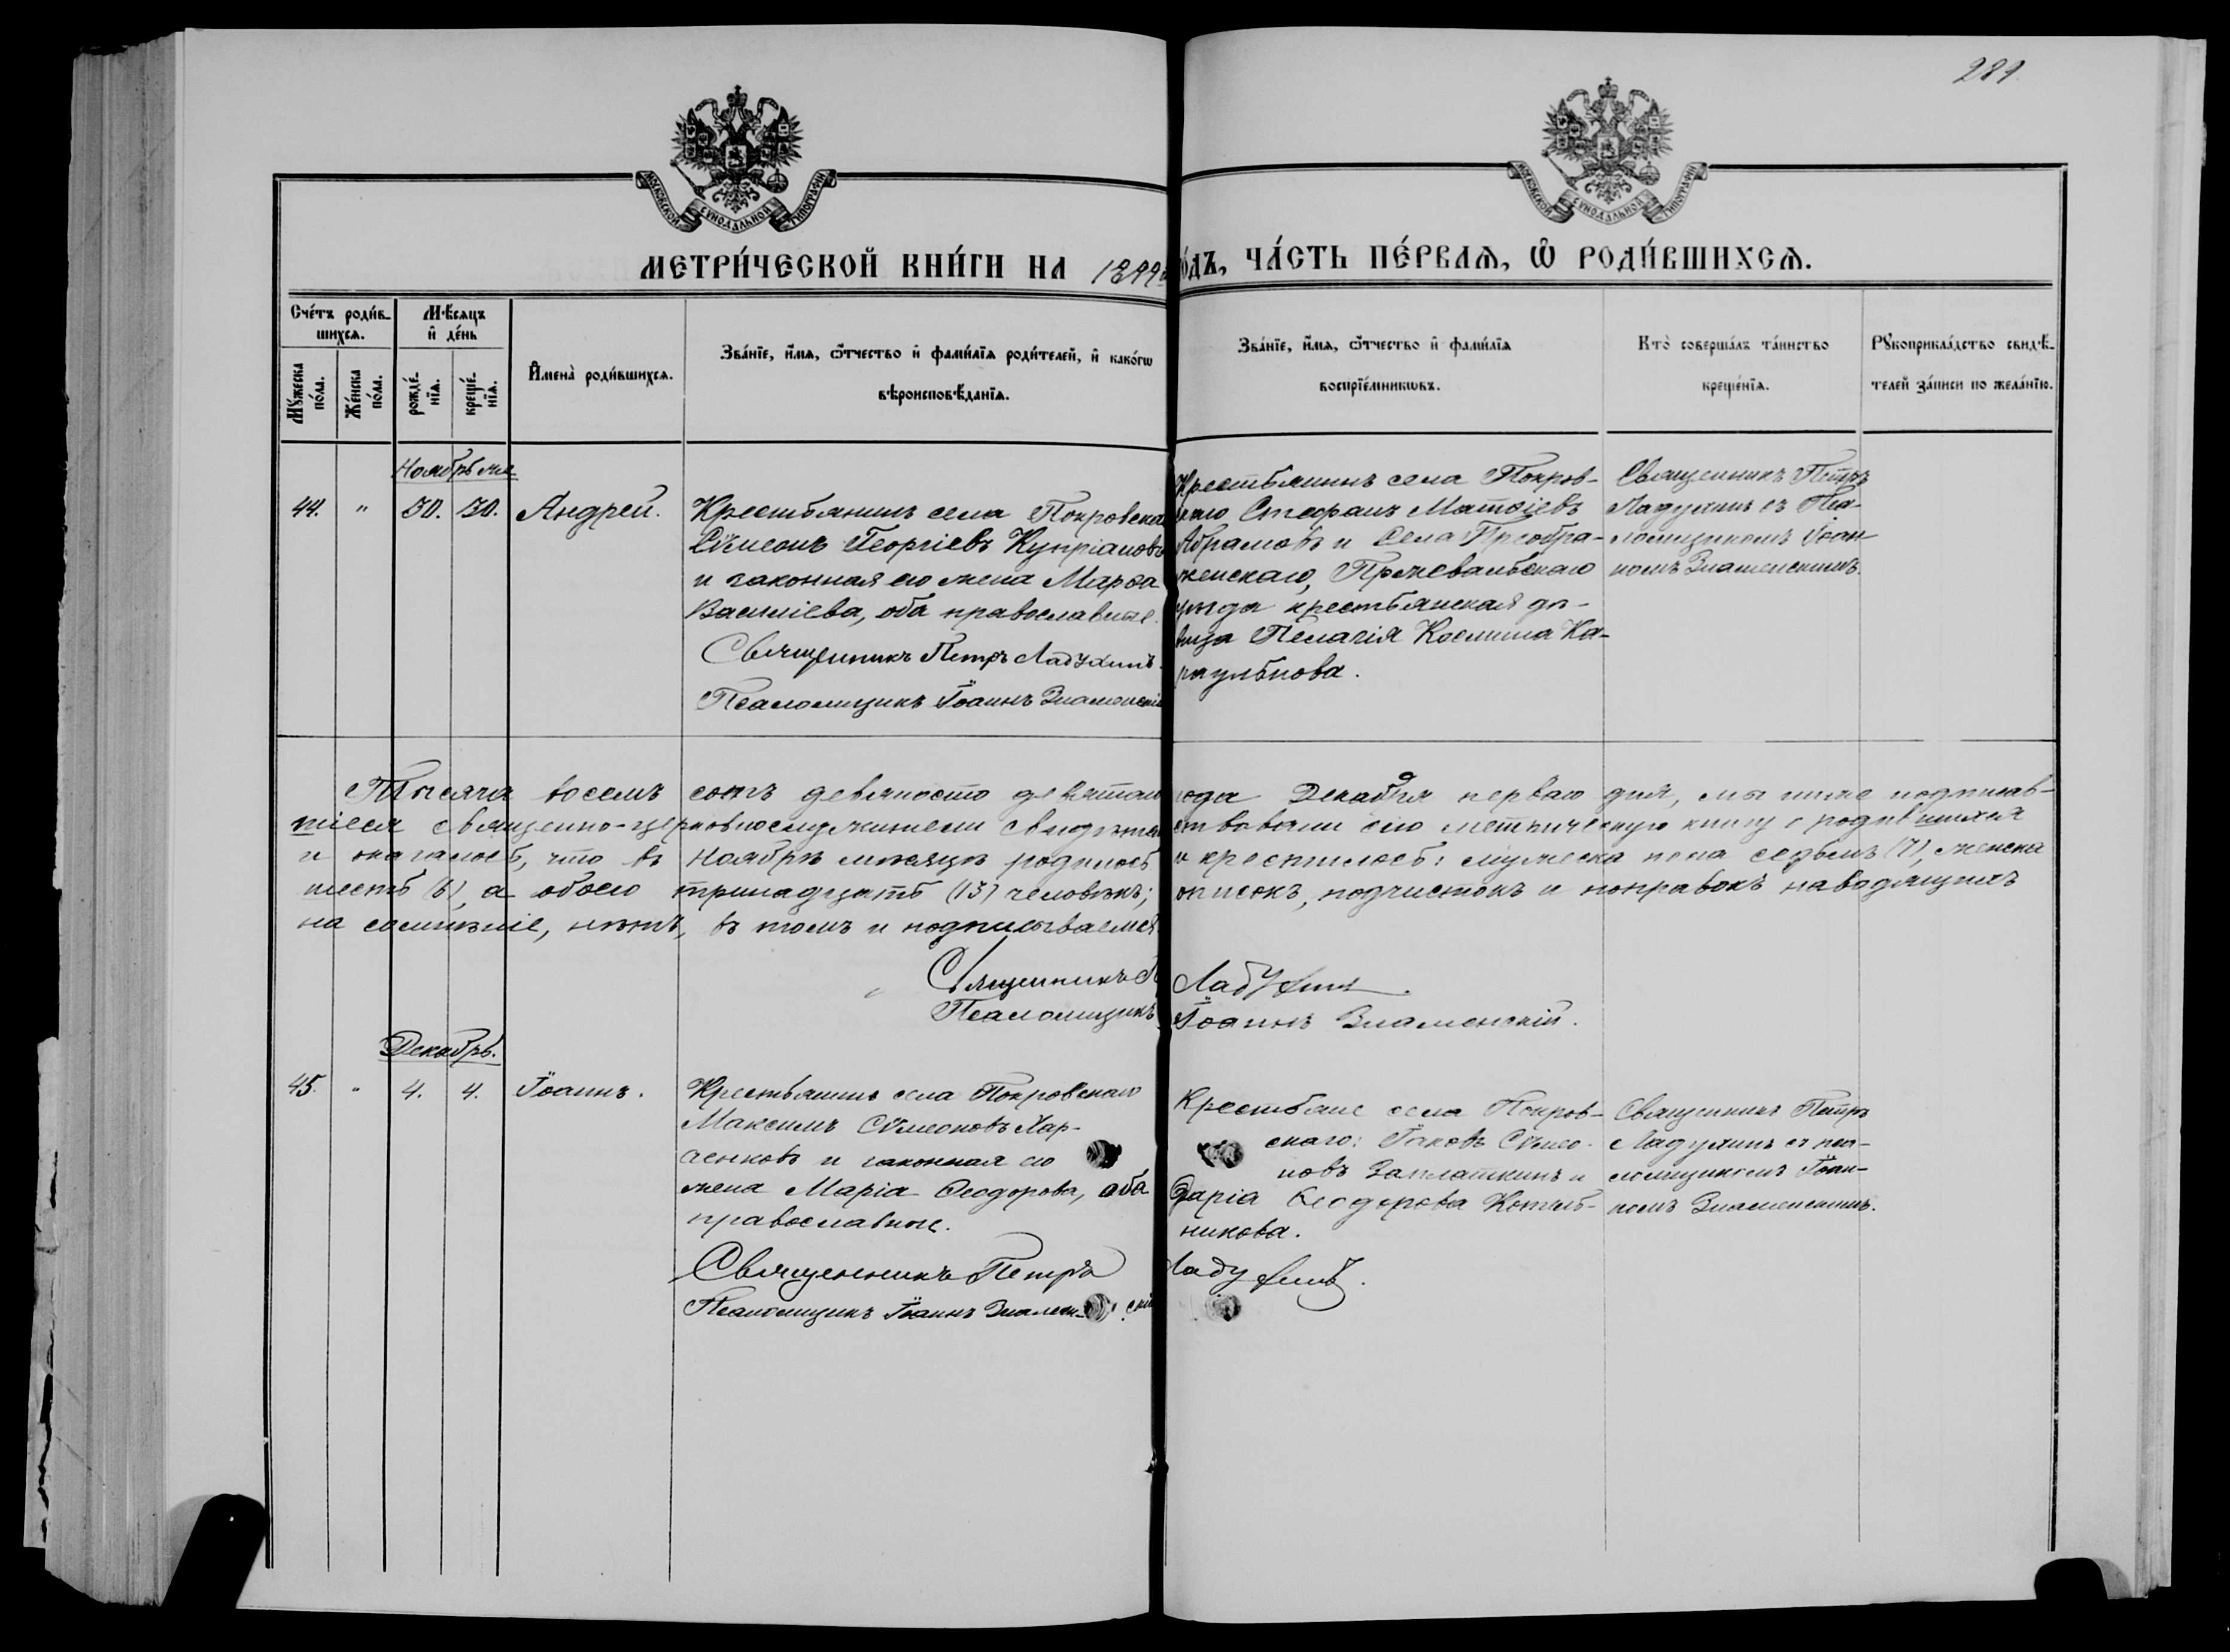 281.
МОСКОВСКОЙ СѴНОДАЛЬНОЙ ТИПОГРАФІИ
МОСКОВСКОЙ СѴНОДАЛЬНОЙ ТИПОГРАФІИ
МЕТРИ́ЧЕСКОЙ КНИ́ГИ НА 1899 го́дъ, ЧА́СТЬ ПЕ́РВАѦ, Ѡ҆ РОДИ́ВШИХСѦ.
Сче́тъ роди́в-
шихсѧ.
Мꙋ́жеска по́ла.
Же́нска по́ла.
Мѣ́сѧцъ
и҆ де́нь
рожде́-
нїѧ.
креще́-
нїѧ.
И҆мена̀ роди́вшихсѧ.
Зва́нїе, и҆́мѧ, ѻ҆́тчество и҆ фами́лїѧ роди́телей, и҆ како́гѡ
вѣроисповѣ́данїѧ.
Зва́нїе, и҆́мѧ, ѻ҆́тчество и҆ фами́лїѧ
воспрїе́мникѡвъ.
Кто̀ соверша́лъ та́инство
креще́нїѧ.
Рꙋкоприкла́дство свидѣ́-
телей за́писи по жела́нїю.
Ноябрь мца
44. " 30. 30. Андрей.
Крестьянинъ села Покровскаго
Сѵмеонъ Георгіевъ Купріановъ
и законная его жена Марѳа
Василіева, оба православные.
Священникъ Петръ Ладухинъ.
Псаломщикъ Іоаннъ Знаменскій
Крестьянинъ села Покров-
скаго Стефанъ Матѳіевъ
Абрамовъ и села Преобра-
женскаго, Пржевальскаго
уѣзда крестьянская дѣ-
вица Пелагія Космина Ка-
раульнова.
Священникъ Петръ
Ладухинъ съ Пса-
ломщикомъ Іоан-
номъ Знаменскимъ.
Тысяча восемь сотъ девяносто девятаго года Декабря перваго дня, мы ниже подписав-
шіеся священно-церковнослужители свидѣтельствовали сію метрическую книгу о родившихся
и оказалось, что въ Ноябрѣ мѣсяцѣ родилось и крестилось: мужеска пола седьмъ (7), женска
шесть (6), а обоего тринадцать (13) человѣкъ; описокъ, подчистокъ и поправокъ наводящихъ
на сомнѣніе, нѣтъ, въ томъ и подписываемся
Священникъ П Ладухинъ.
Псаломщикъ Іоаннъ Знаменскій.
Декабрь.
45. " 4. 4. Іоаннъ.
Крестьянинъ села Покровскаго
Максимъ Сѵмеоновъ Хар-
ченковъ и законная его
жена Марія Ѳеодорова, оба
православные.
Священникъ Петръ Ладухинъ.
Псаломщикъ Іоаннъ Знамен-скій
Крестьяне села Покров-
скаго: Іаковъ Сѵмео-
новъ Заплаткинъ и
Дарія Ѳеодорова Котель-
никова.
Священникъ Петръ
Ладухинъ съ пса-
ломщикомъ Іоан-
номъ Знаменскимъ.